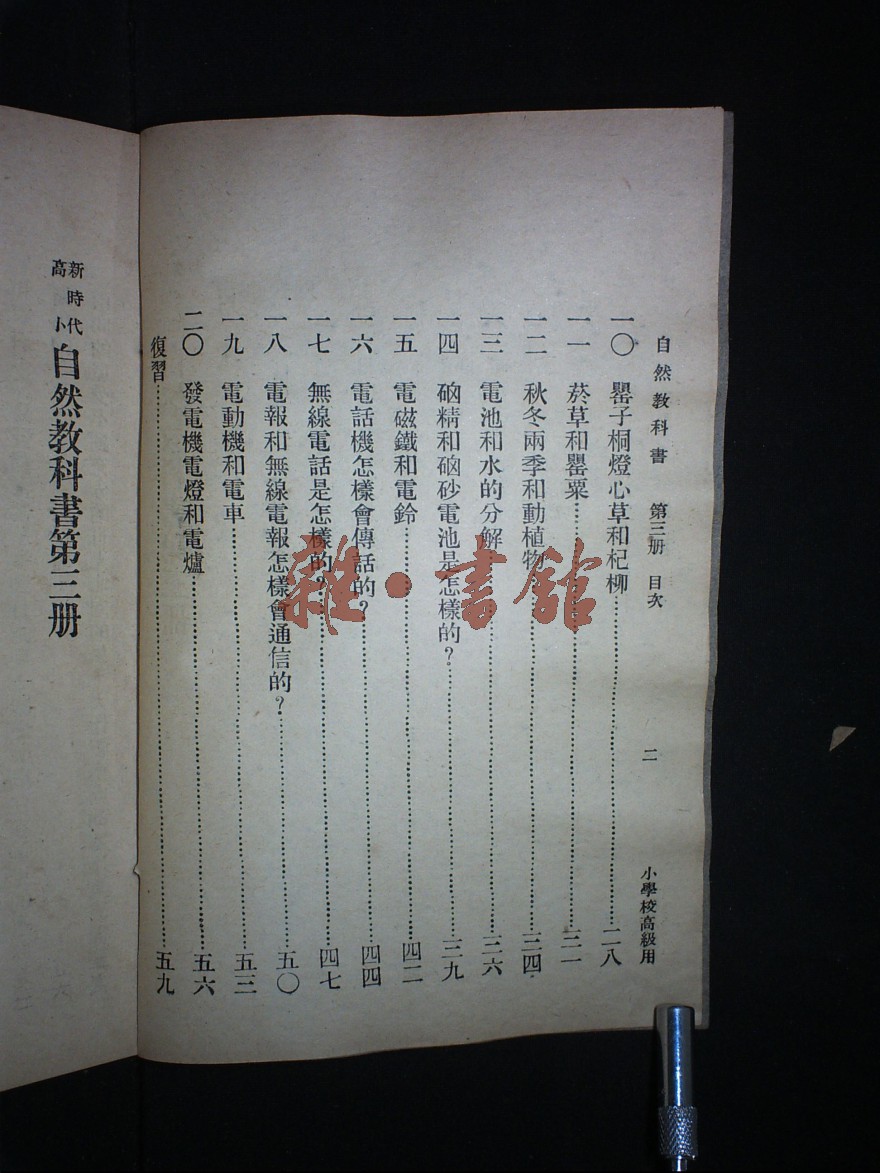 自然教科書 第三册 目次 二 小學校高級用
一〇 罌子桐燈心草和杞柳……二八
一一 菸草和罌粟……三一
一二 秋冬兩季和動植物……三四
一三 電池和水的分解……三六
一四 硇精和硇砂電池是怎樣的？……三九
一五 電磁鐵和電鈴……四二
一六 電話機怎樣會傳話的？……四四
一七 無線電話是怎樣的？……四七
一八 電報和無線電報怎樣會通信的？……五〇
一九 電動機和電車……五三
二〇 發電機電燈和電爐……五六
復習……五九
新時代
高小
自然教科書第三册
雜·書館